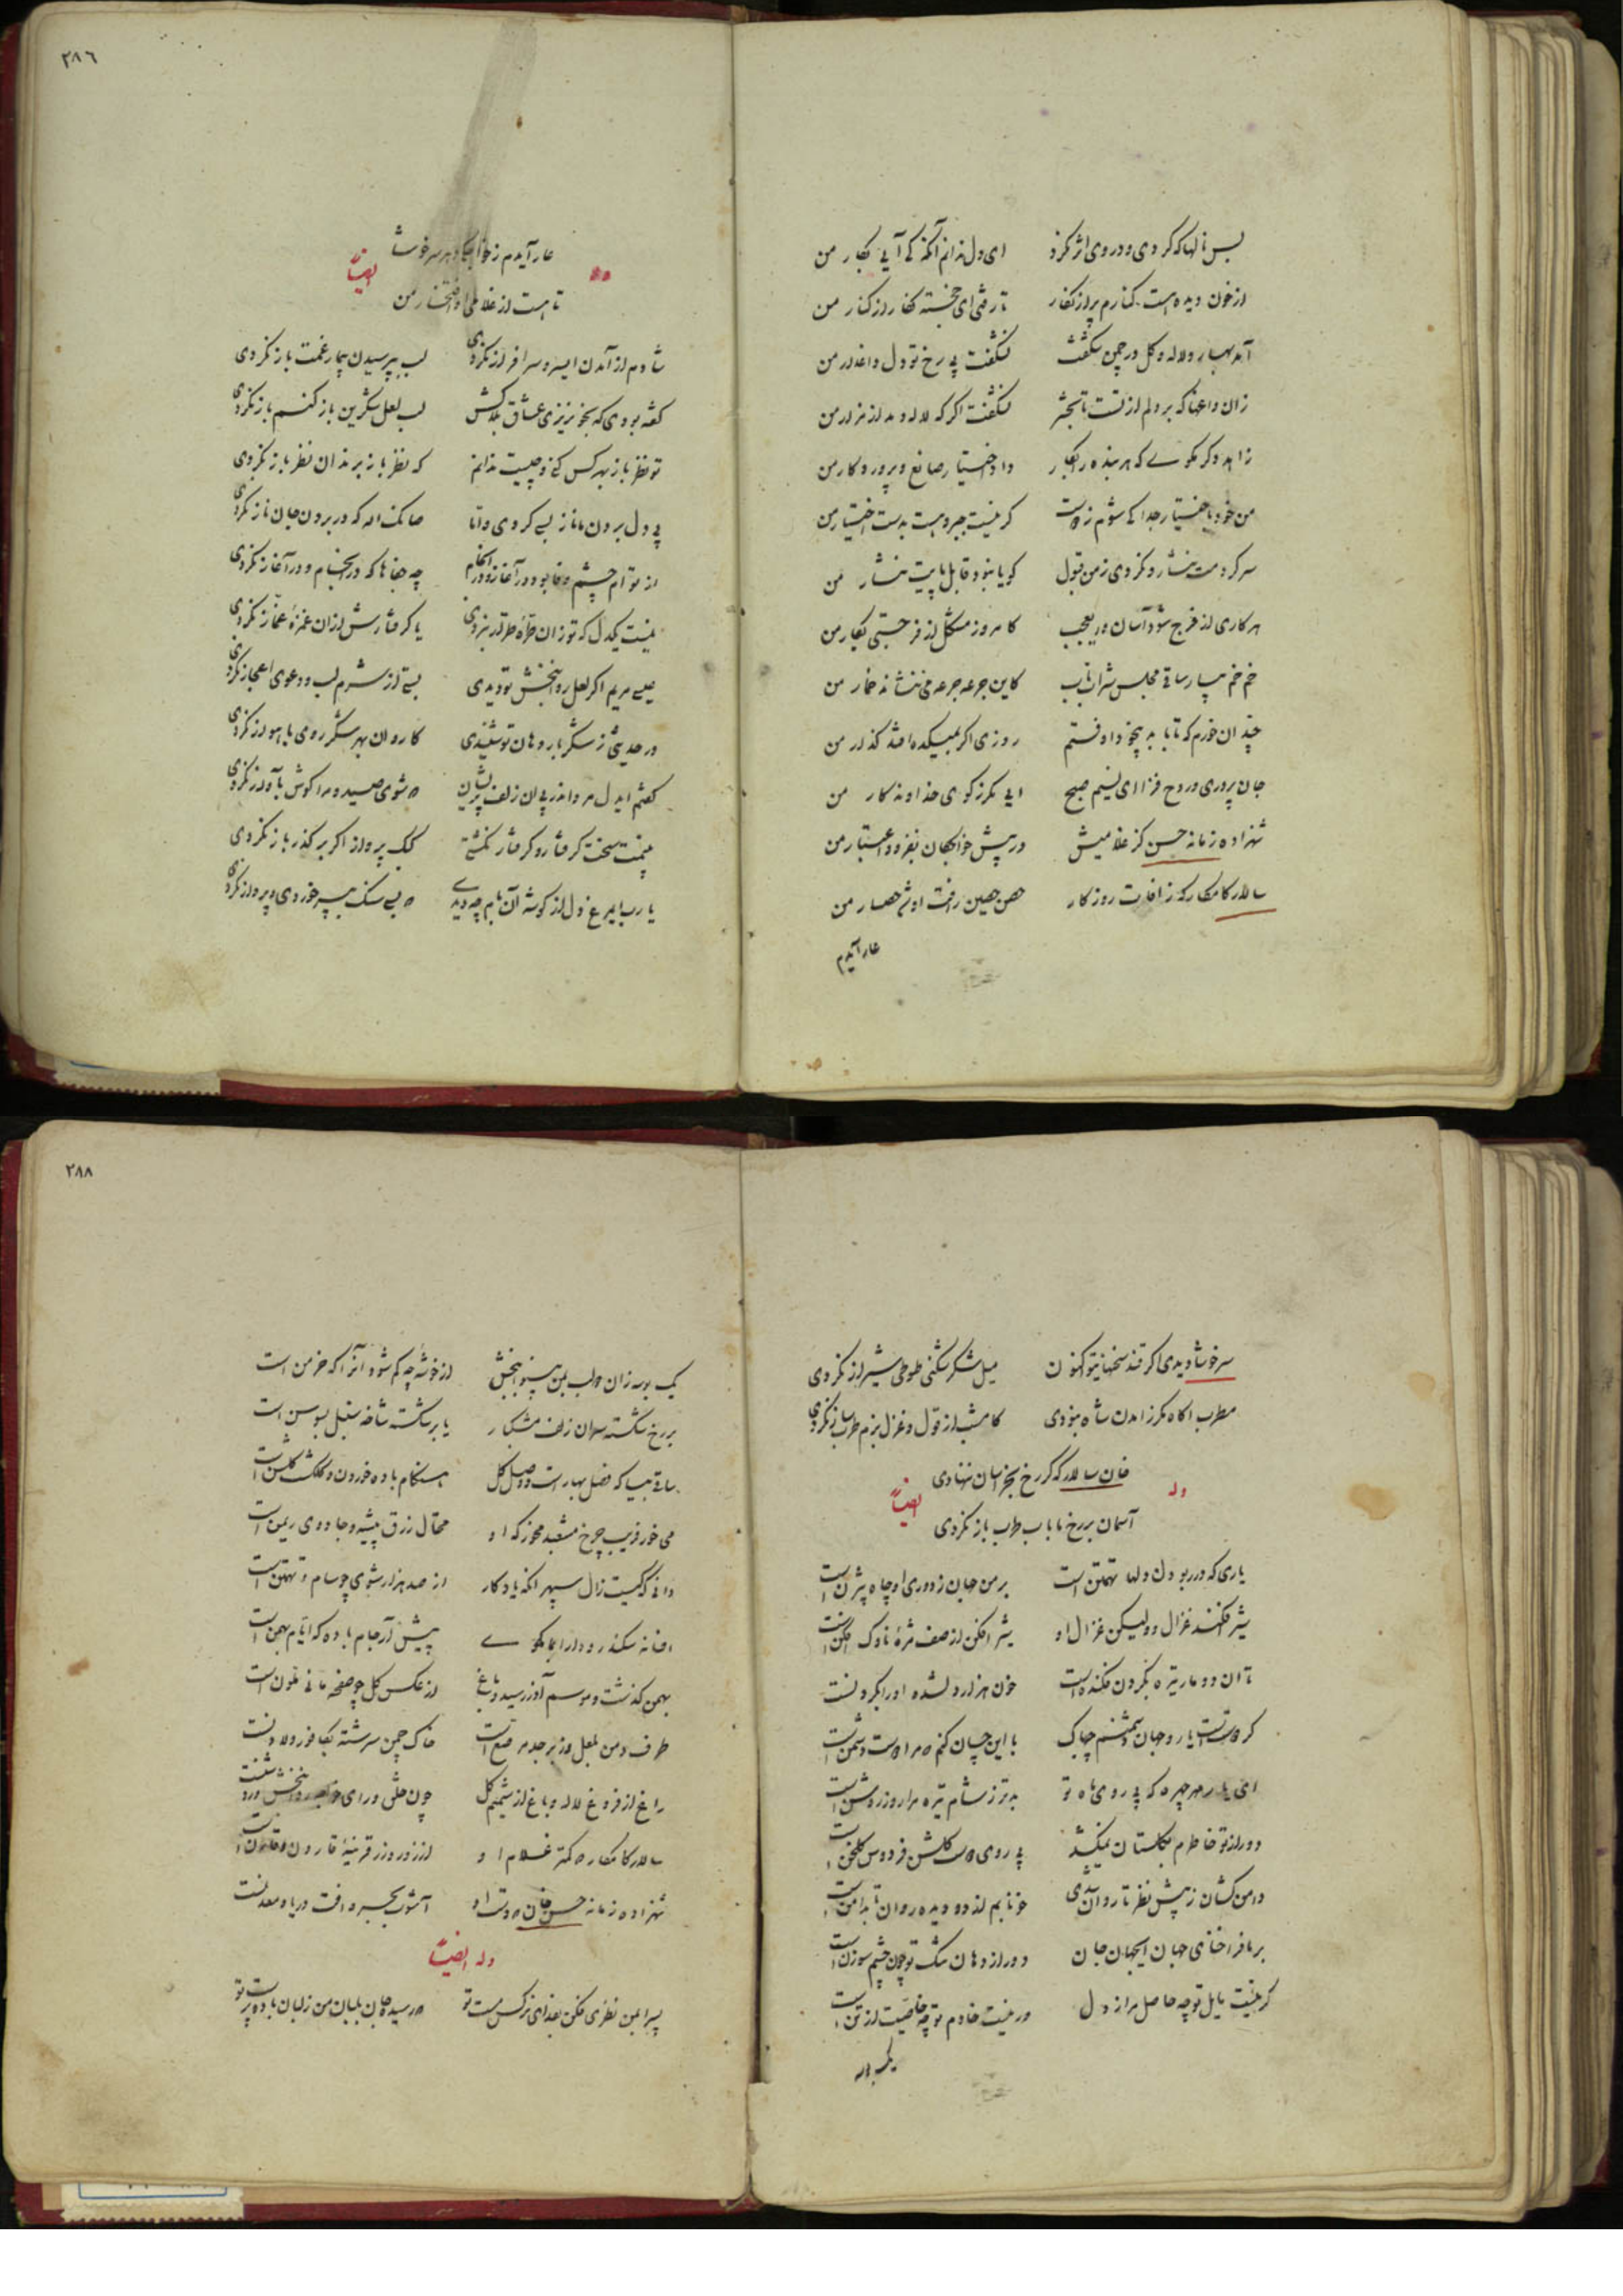 بس نالها که کردی و در وی اثر نکرد ای دل ندانم آنکه کی آیی بکار من
از خون دیده است کنارم پر از نگار تا رفتی ای خجسته نگار از کنار من
آمد بهار و لاله و گل در چمن شگفت نشگفت بی رخ تو دل داغدار من
زان داغها که بر دلم از تست تا بحشر نشگفت اگر که لاله دمد از مزار من
زاهد دگر مگوی که هر بنده را بکار داد اختیار صانع و پرورد کار من
من خود باختیار جدا کی شوم ز دوست گر نیست جبر و هست بدست اختیار من
سر کردمت نثار و نکردی ز من قبول گویا نبود قابل پایت نثار من
هر کاری از فرج شود آسان و ریعجب کامروز مشکل از فرجستی بکار من
خم خم بیار ساقی مجلس شراب ناب کاین جرعه جرعه می ننشاند خمار من
چندان خورم که تا بابد بیخود اوفتم روزی اگر بمیکده افتد گذار من
جان پروری و روح فزا ای نسیم صبح آیی مگر ز کوی خداوندگار من
شهزاده زمانه حسن کز غلامیش در پیش خواجگان بفزود اعتبار من
سالار کامکار که ز آفات روزگار حصن حصین رافت او شد حصار من
عار آیدم
٢٨٦
عار آیدم ز خواجگی دهر سرخوشا
تا هست از غلامی او افتخار من
وله ایضاً
شادم از آمدن ای سرو سرافراز نکردی لب بپرسیدن بیمار غمت باز نکردی
گفته بودی که بخونریزی عشاق بلاکش لب لعل شکرین باز کنم باز نکردی
تو نظر باز بهر کس کنی و چیست ندانم که نظر باز برندان نظر باز نکردی
پی دل بردن ما ناز بسی کردی و اما صد الله که در بردن جان ناز نکردی
از توام چشم وفا بود در آغاز و در انجام چه جفاها که در انجام و در آغاز نکردی
نیست یکدل که تو زان طره طرار نبردی یا گرفتارش از آن غمزه غماز نکردی
عیسی مریم اگر لعل روانبخش تو دیدی بستی از شرم لب و دعوی اعجاز نکردی
ور حدیثی ز شکربار دهان تو شنیدی کاروان بهر شکر روی باهواز نکردی
گفتم ایدل مرو اندر پی آن زلف پریشان که شوی صید و مرا گوش بآواز نکردی
نیمت سخت گرفتار و گرفتار نگشتی کبک پرواز اگر بر گذر باز نکردی
یا رب ای مرغ دل از گوشه آن بام چه دیدی که بسی سنگ بسر خوردی و پرواز نکردی
سرخوشا دیدی اگر قند سخنهای تو اکنون میل شکرشکنی طوطی شیراز نکردی
مطرب آگاه مگر ز آمدن شاه نبودی کامشب از قول و غزل بزم طرب ساز نکردی
خان سالار که گر رخ بخراسان ننهادی
آسمان بر رخ ما باب طرب باز نکردی
وله ایضاً
یاری که در ربودن دلها تهمتن است بر من جهان ز دوری او چاه بیژن است
شیر افکنند غزال و ولیکن غزال او شیر افکن از صف مژه ناوک افکن است
تا آن دو مار تیره بگردن فکنده است خون هزار دلشده او را بگردنست
گر دوستست یار و جهان دشمنم چه باک با این چسان کنم که مرا دوست دشمن است
ای یار مهر چهره که بی روی ماه تو بدتر ز شام تیره مرا روز روشن است
دور از تو خاطرم بگلستان نمیکشد بی روی دوست گلشن فردوس گلخن است
دامن کشان ز پیش نظر تا روان شدی خونابم از دو دیده روان تا بدامن است
بر ما فراخنای جهان ای جهان جان دور از دهان تنگ تو چون چشم سوزن است
گر نیست مایل تو چه حاصل مرا ز دل ور نیست خادم تو چه خاصیت از تن است
یک بوسه
٢٨٨
یک بوسه زان دو لب بمن بینوا ببخش از خوشه چه کم شود آنرا که خرمن است
بر رخ شکسته سر آن زلف مشکبار یا بر شکسته شاخه سنبل بسوسن است
ساقی بیا که فصل بهار است و وصل گل هنگام باده خوردن و گلگشت گلشن است
می خور فریب چرخ مشعبد مخور که او محتال زرق پیشه و جادوی ریمن است
دانی که کیست زال سپهر آنکه یادگار از صد هزار شوی چو سام و تهمتن است
افسانه سکندر و دارا بما مگوی پیش آر جام باده که ایام بهمن است
بهمن گذشت و موسم آذر رسید و باغ از عکس گل چو صفحه مانی ملون است
طرف دمن بلعل و زبرجد مرصع است خاک چمن سرشته بکافور و لادنست
راغ از فروغ لاله و باغ از شمیم گل چون
سالار کامکار که کمتر غلام او از زور و زر قرینه قارون و قارن است
شهزاده زمانه حسن خان که دست او آشوب بحر و آفت دریا و معدنست
وله ایضاً
پسرا بمن نظری فکن بفدای نرگس مست تو که رسید جان بلبان من ز لبان باده پرست تو